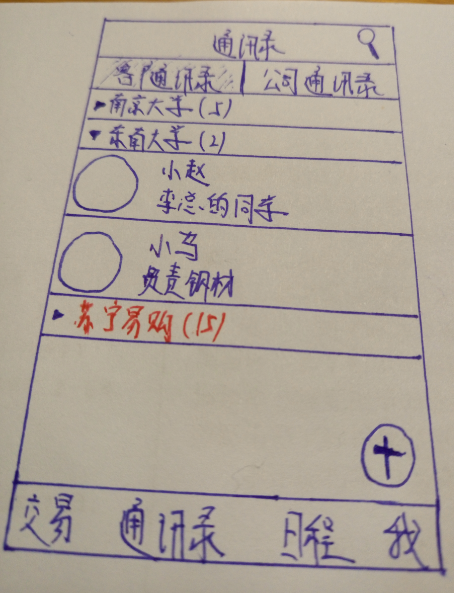 通讯录
客户通讯录 公司通讯录
南京大学(5)
东南大学(2)
小赵
李总的同学
小马
负责钢材
苏宁易购(15)
交易 通讯录 日程 我